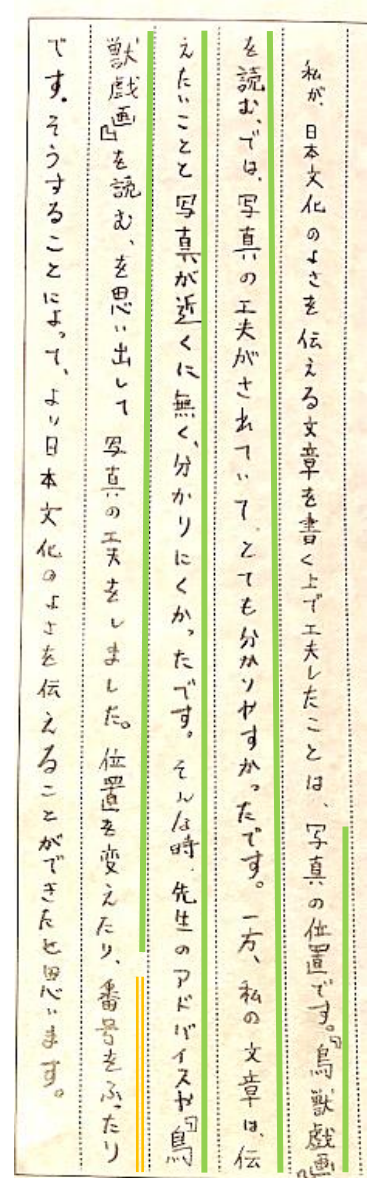 私が、日本文化のよさを伝える文章を書く上で工夫したことは、写真の位置です。『鳥獣戯画』
を読む、では、写真の工夫がされていて、とても分かりやすかったです。一方、私の文章は、伝
えたいことと写真が近くに無く、分かりにくかったです。そんな時、先生のアドバイスや『鳥
獣戯画』を読む、を思い出して写真の工夫をしました。位置を変えたり、番号をふったり
です。そうすることによって、より日本文化のよさを伝えることができたと思います。